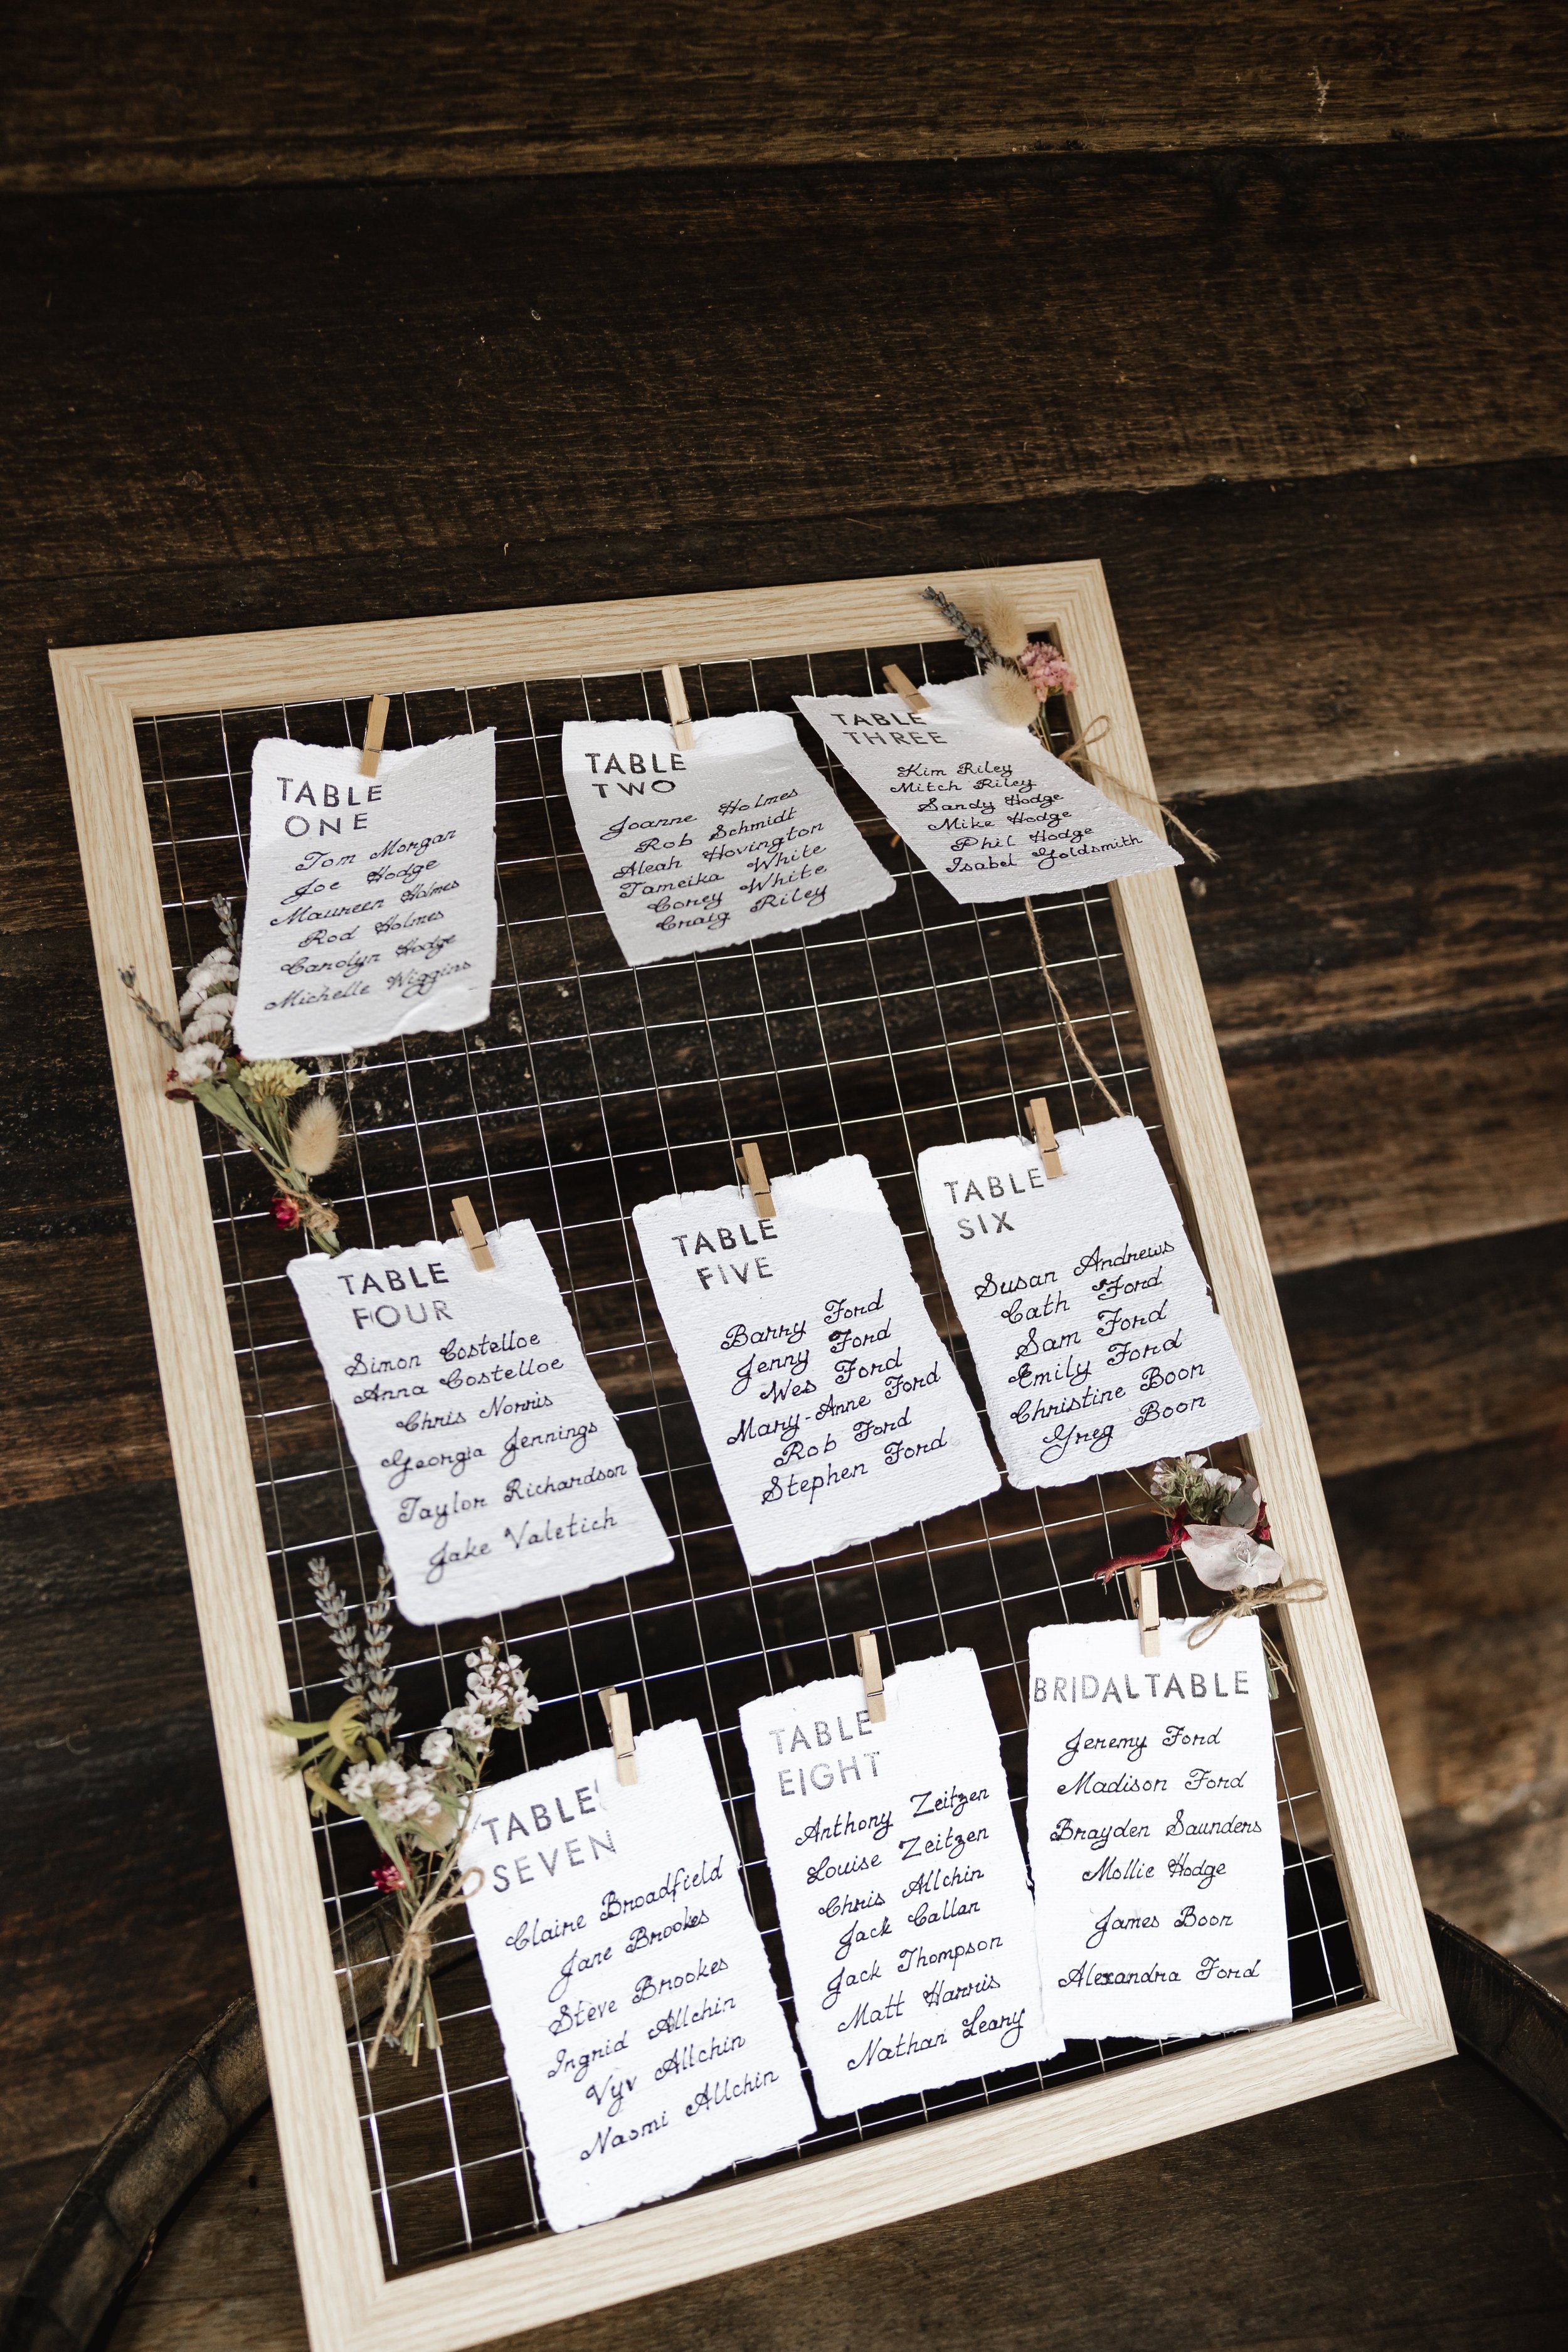 TABLE
ONE
Tom Morgan
Joe Hodge
Maureen Holmes
Rod Holmes
Carolyn Hodge
Michelle Wiggins
TABLE
TWO
Joanne Holmes
Rob Schmidt
Aleah Hovington
Tameika White
Corey White
Craig Riley
TABLE
THREE
Kim Riley
Mitch Riley
Sandy Hodge
Mike Hodge
Phil Hodge
Isabel Goldsmith
TABLE
FOUR
Simon Costelloe
Anna Costelloe
Chris Norris
Georgia Jennings
Taylor Richardson
Jake Valetich
TABLE
FIVE
Barry Ford
Jenny Ford
Wes Ford
Mary-Anne Ford
Rob Ford
Stephen Ford
TABLE
SIX
Susan Andrews
Cath Ford
Sam Ford
Emily Ford
Christine Boon
Greg Boon
TABLE
SEVEN
Claire Broadfield
Jane Brookes
Steve Brookes
Ingrid Allchin
Vyv Allchin
Naomi Allchin
TABLE
EIGHT
Anthony Zeitzen
Louise Zeitzen
Chris Allchin
Jack Callan
Jack Thompson
Matt Harris
Nathan Leary
BRIDAL TABLE
Jeremy Ford
Madison Ford
Brayden Saunders
Mollie Hodge
James Boon
Alexandra Ford